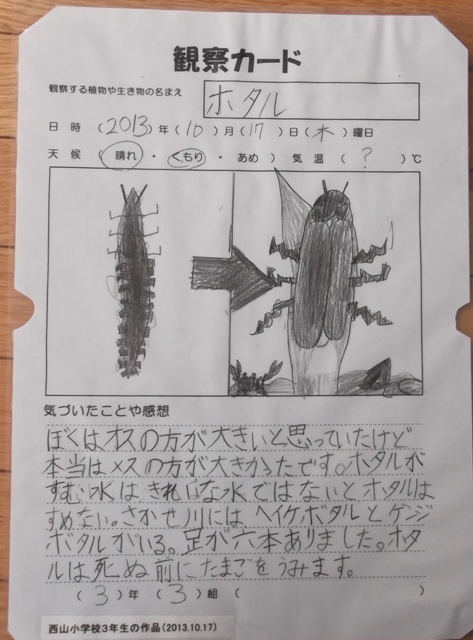 観察カード
観察する植物や生き物の名まえ ホタル
日時 (2013)年(10)月(17)日(木)曜日
天候 (晴れ・くもり・あめ) 気温 (?)℃
気づいたことや感想
ぼくは、オスの方が大きいと思っていたけど
本当はメスの方が大きかったです。ホタルが
すむ水はきれいな水ではないとホタルは
すめない。さかせ川にはヘイケボタルとゲンジ
ボタルがいる。足が六本ありました。ホタ
ルは死ぬ前にたまごをうみます。
(3)年(3)組( )
西山小学校3年生の作品(2013.10.17)